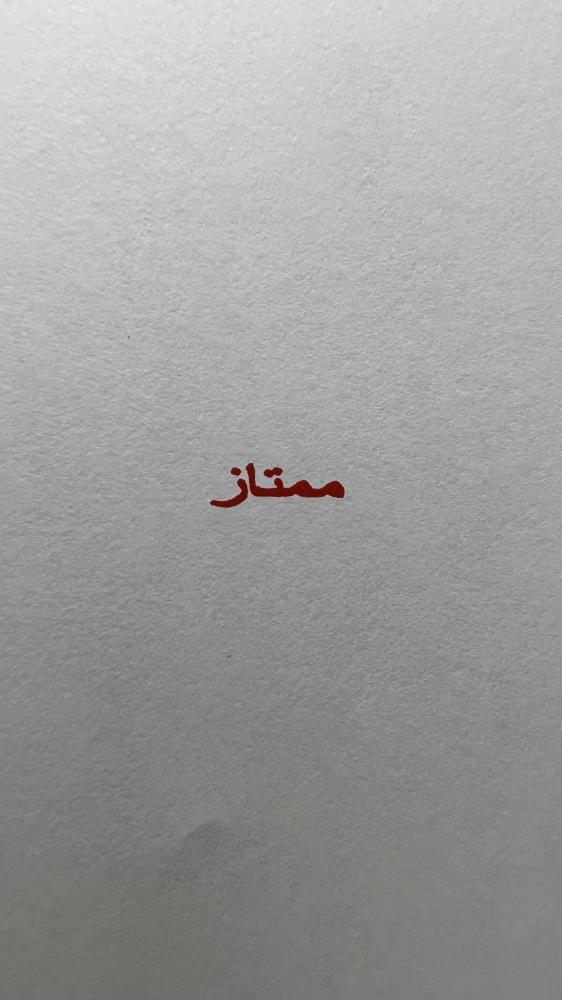 ممتاز